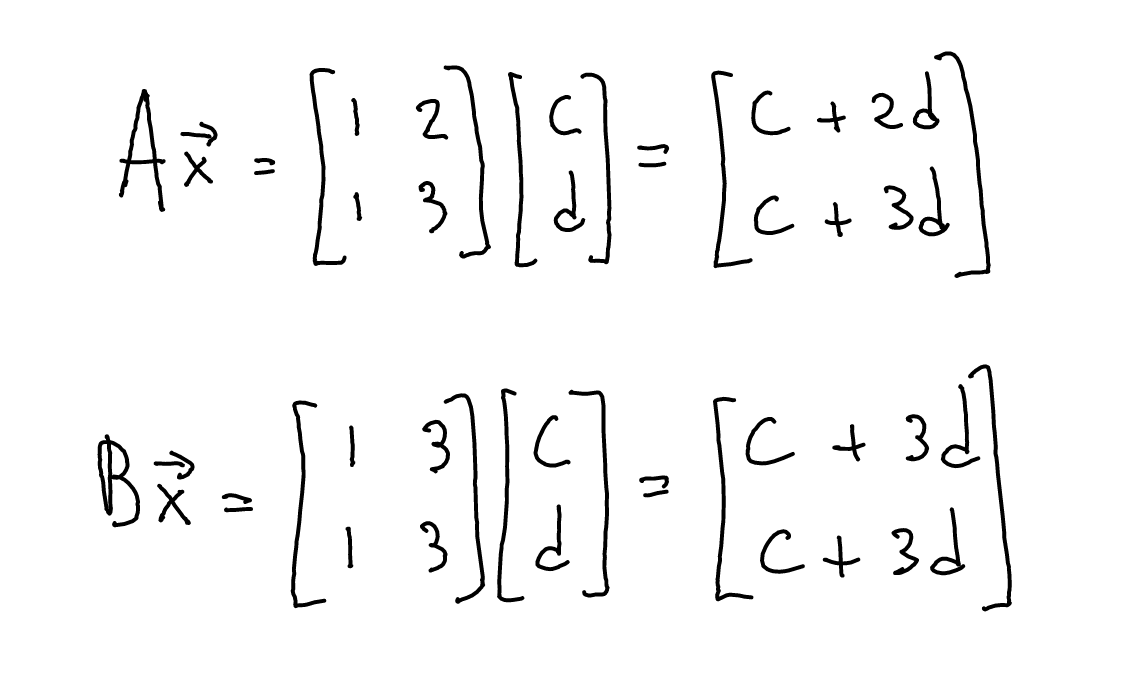 A\vec{x} = \begin{bmatrix} 1 & 2 \\ 1 & 3 \end{bmatrix} \begin{bmatrix} c \\ d \end{bmatrix} = \begin{bmatrix} c + 2d \\ c + 3d \end{bmatrix}
B\vec{x} = \begin{bmatrix} 1 & 3 \\ 1 & 3 \end{bmatrix} \begin{bmatrix} c \\ d \end{bmatrix} = \begin{bmatrix} c + 3d \\ c + 3d \end{bmatrix}